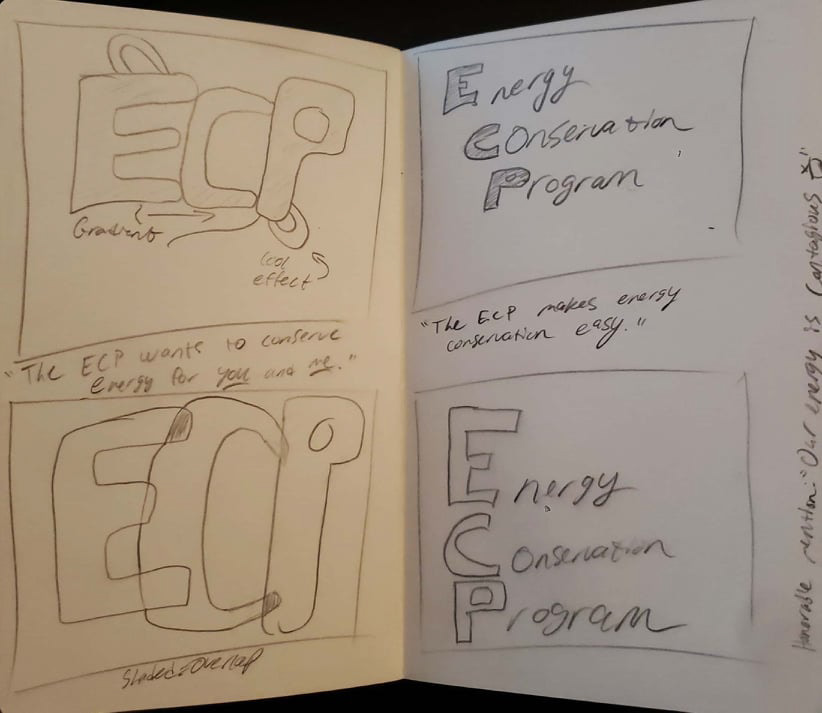 ECP
Gradient
cool
effect
"The ECP wants to conserve
energy for you and me."
ECP
Shaded=Overlap
Energy
Conservation
Program
"The ECP makes energy
conservation easy."
Energy
Conservation
Program
Honorable mention: "Our energy is contagious"